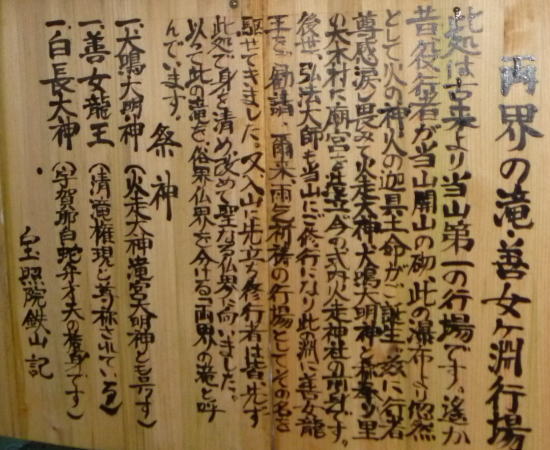 両界の滝・善女ケ淵行場
此処は古来より当山第一の行場です。遥か
昔役行者が当山開山の砌、此の瀑布より忽然
として火の神火の迦具土命がご誕生。茲に行者
尊感涙し畏みて火走大神、犬鳴大明神と称奉り里
の大木村に廟宮を 今の式内火走神社の です。
後世、弘法大師も当山にご修行になり此の淵に善女龍
王をご勧請、爾来、雨乞祈祷の行場としてその名を
駆せてきました。又、入山に先立ち修行者は皆、先ず
此処で身を清め改めて聖なる仏界に向いました。
以って此の滝を、俗界仏界を分ける「両界の滝」と呼
んでいます。
祭神
一、犬鳴大明神(火走大神滝宮大明神とも号す)
一、善女龍王(清滝権現と尊称されている)
一、白長大神(宇賀耶白蛇弁才天の権身です)
宝照院鉄山 記